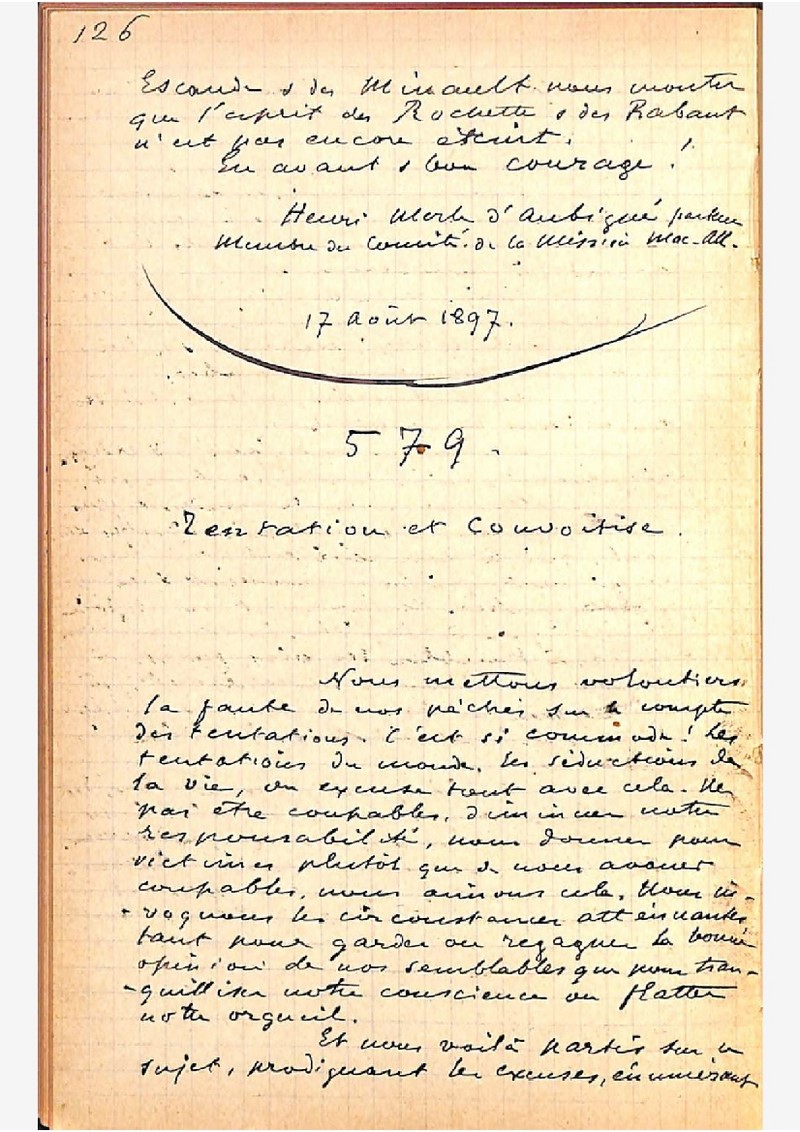 126
Escande & des Minault nous montre
que l'esprit des Rochette & des Rabaut
n'est pas encore éteint.
En avant & bon courage !
Henri Merle d'Aubigné pasteur
Membre du Comité de la Mission Mac-All.
17 Août 1897.
579.
Tentation et Convoitise.
Nous mettons volontiers
la faute de nos péchés sur le compte
des tentations. C'est si commode ! Les
tentations du monde, les séductions de
la vie, on excuse tout avec cela. Ne
pas être coupables, diminuer notre
responsabilité, nous donner pour
victimes plutôt que de nous avouer
coupables, nous aimons cela. Nous in-
-voquons les circonstances atténuantes
tant pour garder ou regagner la bonne
opinion de nos semblables que pour tran-
-quilliser notre conscience ou flatter
notre orgueil.
Et nous voilà partis sur ce
sujet, prodiguant les excuses, énumérant